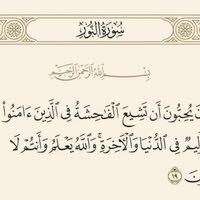 سُورَةُ النُّورِ
بِسْمِ اللَّهِ الرَّحْمَٰنِ الرَّحِيمِ
يُحِبُّونَ أَن تَشِيعَ الْفَاحِشَةُ فِي الَّذِينَ ءَامَنُوا
فِي الدُّنْيَا وَالْآخِرَةِ ۚ وَاللَّهُ يَعْلَمُ وَأَنتُمْ لَا
١٩